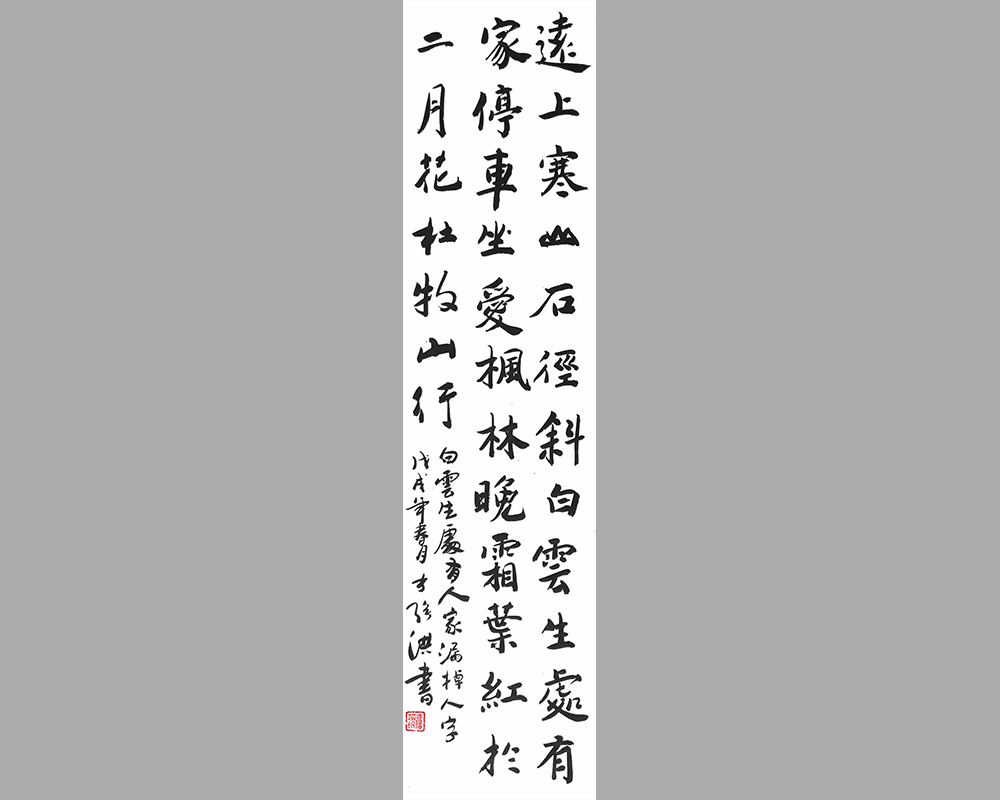 遠上寒山石徑斜白雲生處有
家停車坐愛楓林晚霜葉紅於
二月花杜牧山行
白雲生處有人家漏掉人字
戊戌年春月書